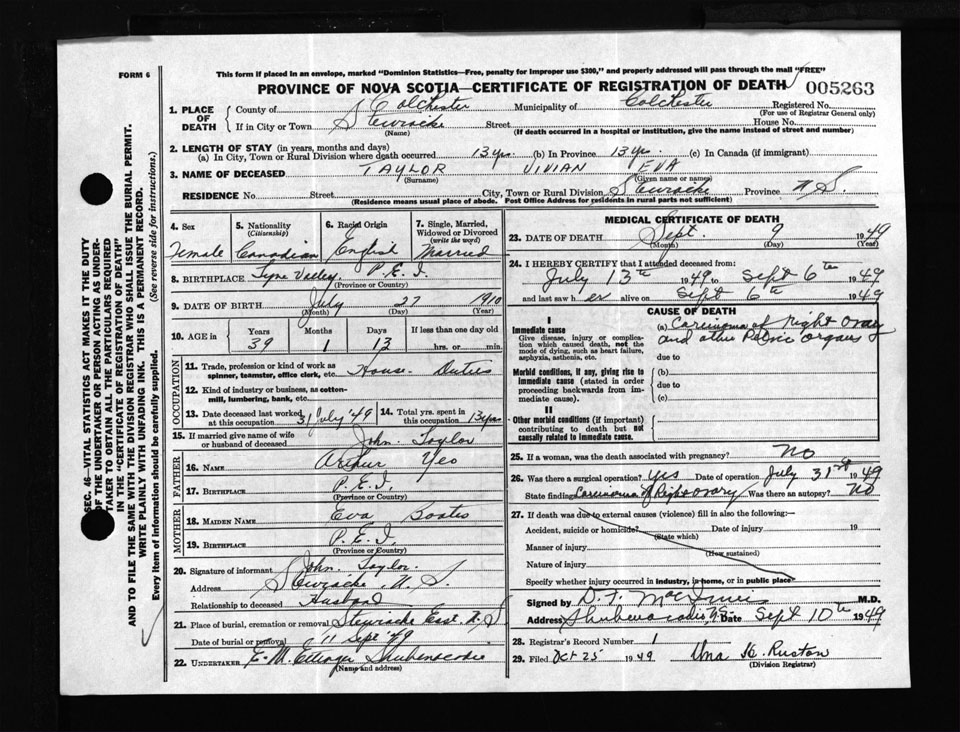 FORM 6
This form if placed in an envelope, marked "Dominion Statistics—Free, penalty for improper use $300," and properly addressed will pass through the mail "FREE"
PROVINCE OF NOVA SCOTIA—CERTIFICATE OF REGISTRATION OF DEATH 005263
1. PLACE OF DEATH
County of Colchester Municipality of Colchester Registered No.
(For use of Registrar General only)
If in City or Town Stewiacke Street House No.
(Name) (If death occurred in a hospital or institution, give the name instead of street and number)
2. LENGTH OF STAY (in years, months and days)
(a) In City, Town or Rural Division where death occurred 13 yrs. (b) In Province 13 yrs. (c) In Canada (if immigrant)
3. NAME OF DECEASED TAYLOR VIVIAN EVA
(Surname) (Given name or names)
RESIDENCE No. Street City, Town or Rural Division Stewiacke Province N S.
(Residence means usual place of abode. Post Office Address for residents in rural parts not sufficient)
4. Sex
Female
5. Nationality
(Citizenship)
Canadian
6. Racial Origin
English
7. Single, Married, Widowed or Divorced
(write the word)
Married
8. BIRTHPLACE Tyne Valley, P.E.I.
(Province or Country)
9. DATE OF BIRTH July 27 1910
(Month) (Day) (Year)
10. AGE in Years Months Days If less than one day old
39 1 13 hrs. or min.
OCCUPATION
11. Trade, profession or kind of work as spinner, teamster, office clerk, etc. House Duties
12. Kind of industry or business, as cotton-mill, lumbering, bank, etc.
13. Date deceased last worked at this occupation 31 July '49 14. Total yrs. spent in this occupation 13 yrs
15. If married give name of wife or husband of deceased John Taylor
FATHER
16. NAME Arthur Yeo
17. BIRTHPLACE P.E.I.
(Province or Country)
MOTHER
18. MAIDEN NAME Eva
19. BIRTHPLACE P.E.I.
(Province or Country)
20. Signature of informant John Taylor
Address Stewiacke N.S.
Relationship to deceased Husband
21. Place of burial, cremation or removal Stewiacke East N.S
Date of burial or removal 11 Sept '49
22. UNDERTAKER E. M. Ettinger Shubenacadie
(Name and address)
MEDICAL CERTIFICATE OF DEATH
23. DATE OF DEATH Sept. 9 1949
(Month) (Day) (Year)
24. I HEREBY CERTIFY that I attended deceased from:
July 13th 1949 to Sept 6th 1949
and last saw her alive on Sept 6th 1949
CAUSE OF DEATH
I
Immediate cause
Give disease, injury or complication which caused death, not the mode of dying, such as heart failure, asphyxia, asthenia, etc.
(a) Carcinoma of right ovary
and other Pelvic organs
due to
Morbid conditions, if any, giving rise to immediate cause (stated in order proceeding backwards from immediate cause).
(b)
due to
(c)
II
Other morbid conditions (if important) contributing to death but not causally related to immediate cause.
25. If a woman, was the death associated with pregnancy? No
26. Was there a surgical operation? Yes Date of operation July 31st 1949
State findings Carcinoma of Right ovary Was there an autopsy? No
27. If death was due to external causes (violence) fill in also the following:—
Accident, suicide or homicide? Date of injury 19
(State which)
Manner of injury
(How sustained)
Nature of injury
Specify whether injury occurred in industry, in home, or in public place
Signed by D. F. MacInnis M.D.
Address Shubenacadie, N.S. Date Sept 10th 1949
28. Registrar's Record Number 1
29. Filed Oct 25 1949 Una K. Ruston
(Division Registrar)
SEC. 46—VITAL STATISTICS ACT MAKES IT THE DUTY
OF THE UNDERTAKER OR PERSON ACTING AS UNDER-
TAKER TO OBTAIN ALL THE PARTICULARS REQUIRED
IN THE "CERTIFICATE OF REGISTRATION OF DEATH"
AND TO FILE THE SAME WITH THE DIVISION REGISTRAR WHO SHALL ISSUE THE BURIAL PERMIT.
WRITE PLAINLY WITH UNFADING INK. THIS IS A PERMANENT RECORD.
Every item of information should be carefully supplied. (See reverse side for instructions.)